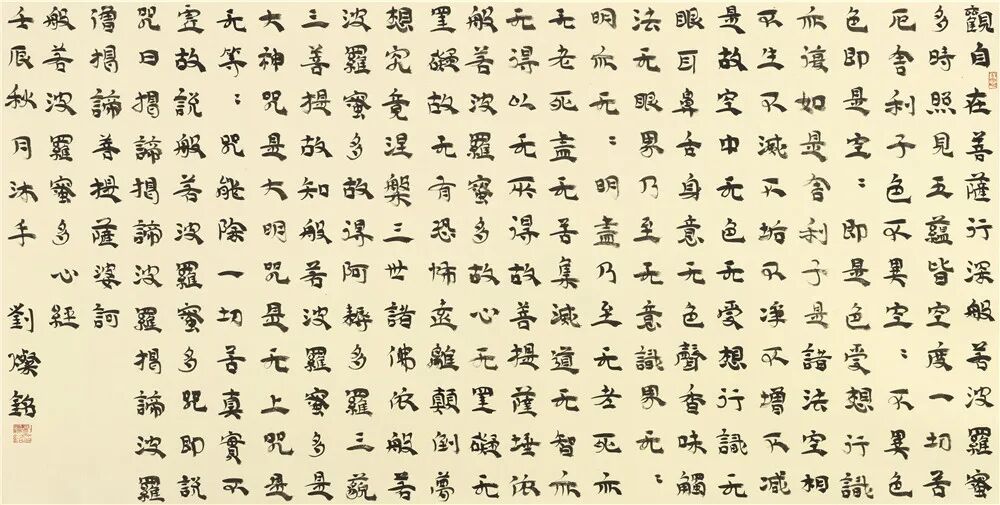 觀自在菩薩行深般若波羅蜜
多時照見五蘊皆空度一切苦
厄舍利子色不異空：不異色
色即是空：即是色受想行識
亦復如是舍利子是諸法空相
不生不滅不垢不淨不增不減
是故空中无色无受想行識无
眼耳鼻舌身意无色聲香味觸
法无眼界乃至无意識界无：
明亦无：明盡乃至无老死亦
无老死盡无苦集滅道无智亦
无得以无所得故菩提薩埵依
般若波羅蜜多故心无罣礙无
罣礙故无有恐怖遠離顛倒夢
想究竟涅槃三世諸佛依般若
波羅蜜多故得阿耨多羅三藐
三菩提故知般若波羅蜜多是
大神咒是大明咒是无上咒是
无等：咒能除一切苦真實不
虛故說般若波羅蜜多咒即說
咒曰揭諦揭諦波羅揭諦波羅
僧揭諦菩提薩婆訶
般若波羅蜜多心經
壬辰秋月沐手 劉燦銘